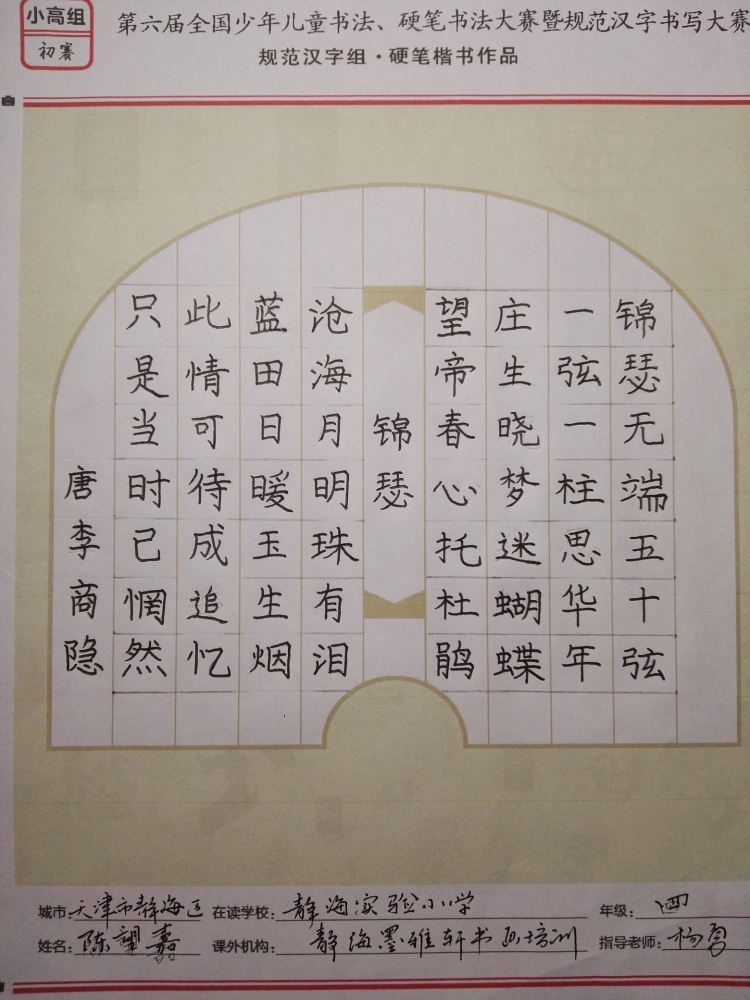 小高组
初赛
第六届全国少年儿童书法、硬笔书法大赛暨规范汉字书写大赛
规范汉字组·硬笔楷书作品
锦瑟无端五十弦
一弦一柱思华年
庄生晓梦迷蝴蝶
望帝春心托杜鹃
锦瑟
沧海月明珠有泪
蓝田日暖玉生烟
此情可待成追忆
只是当时已惘然
唐李商隐
城市:天津市静海区 在读学校:静海实验小学 年级:四
姓名:陈望嘉 课外机构:静海墨雅轩书画培训 指导老师:杨勇